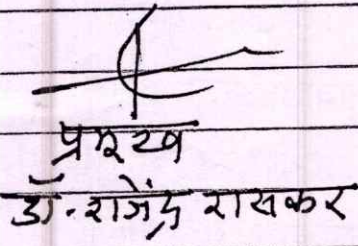 प्रमुख
डॉ. राजेंद्र रासकर